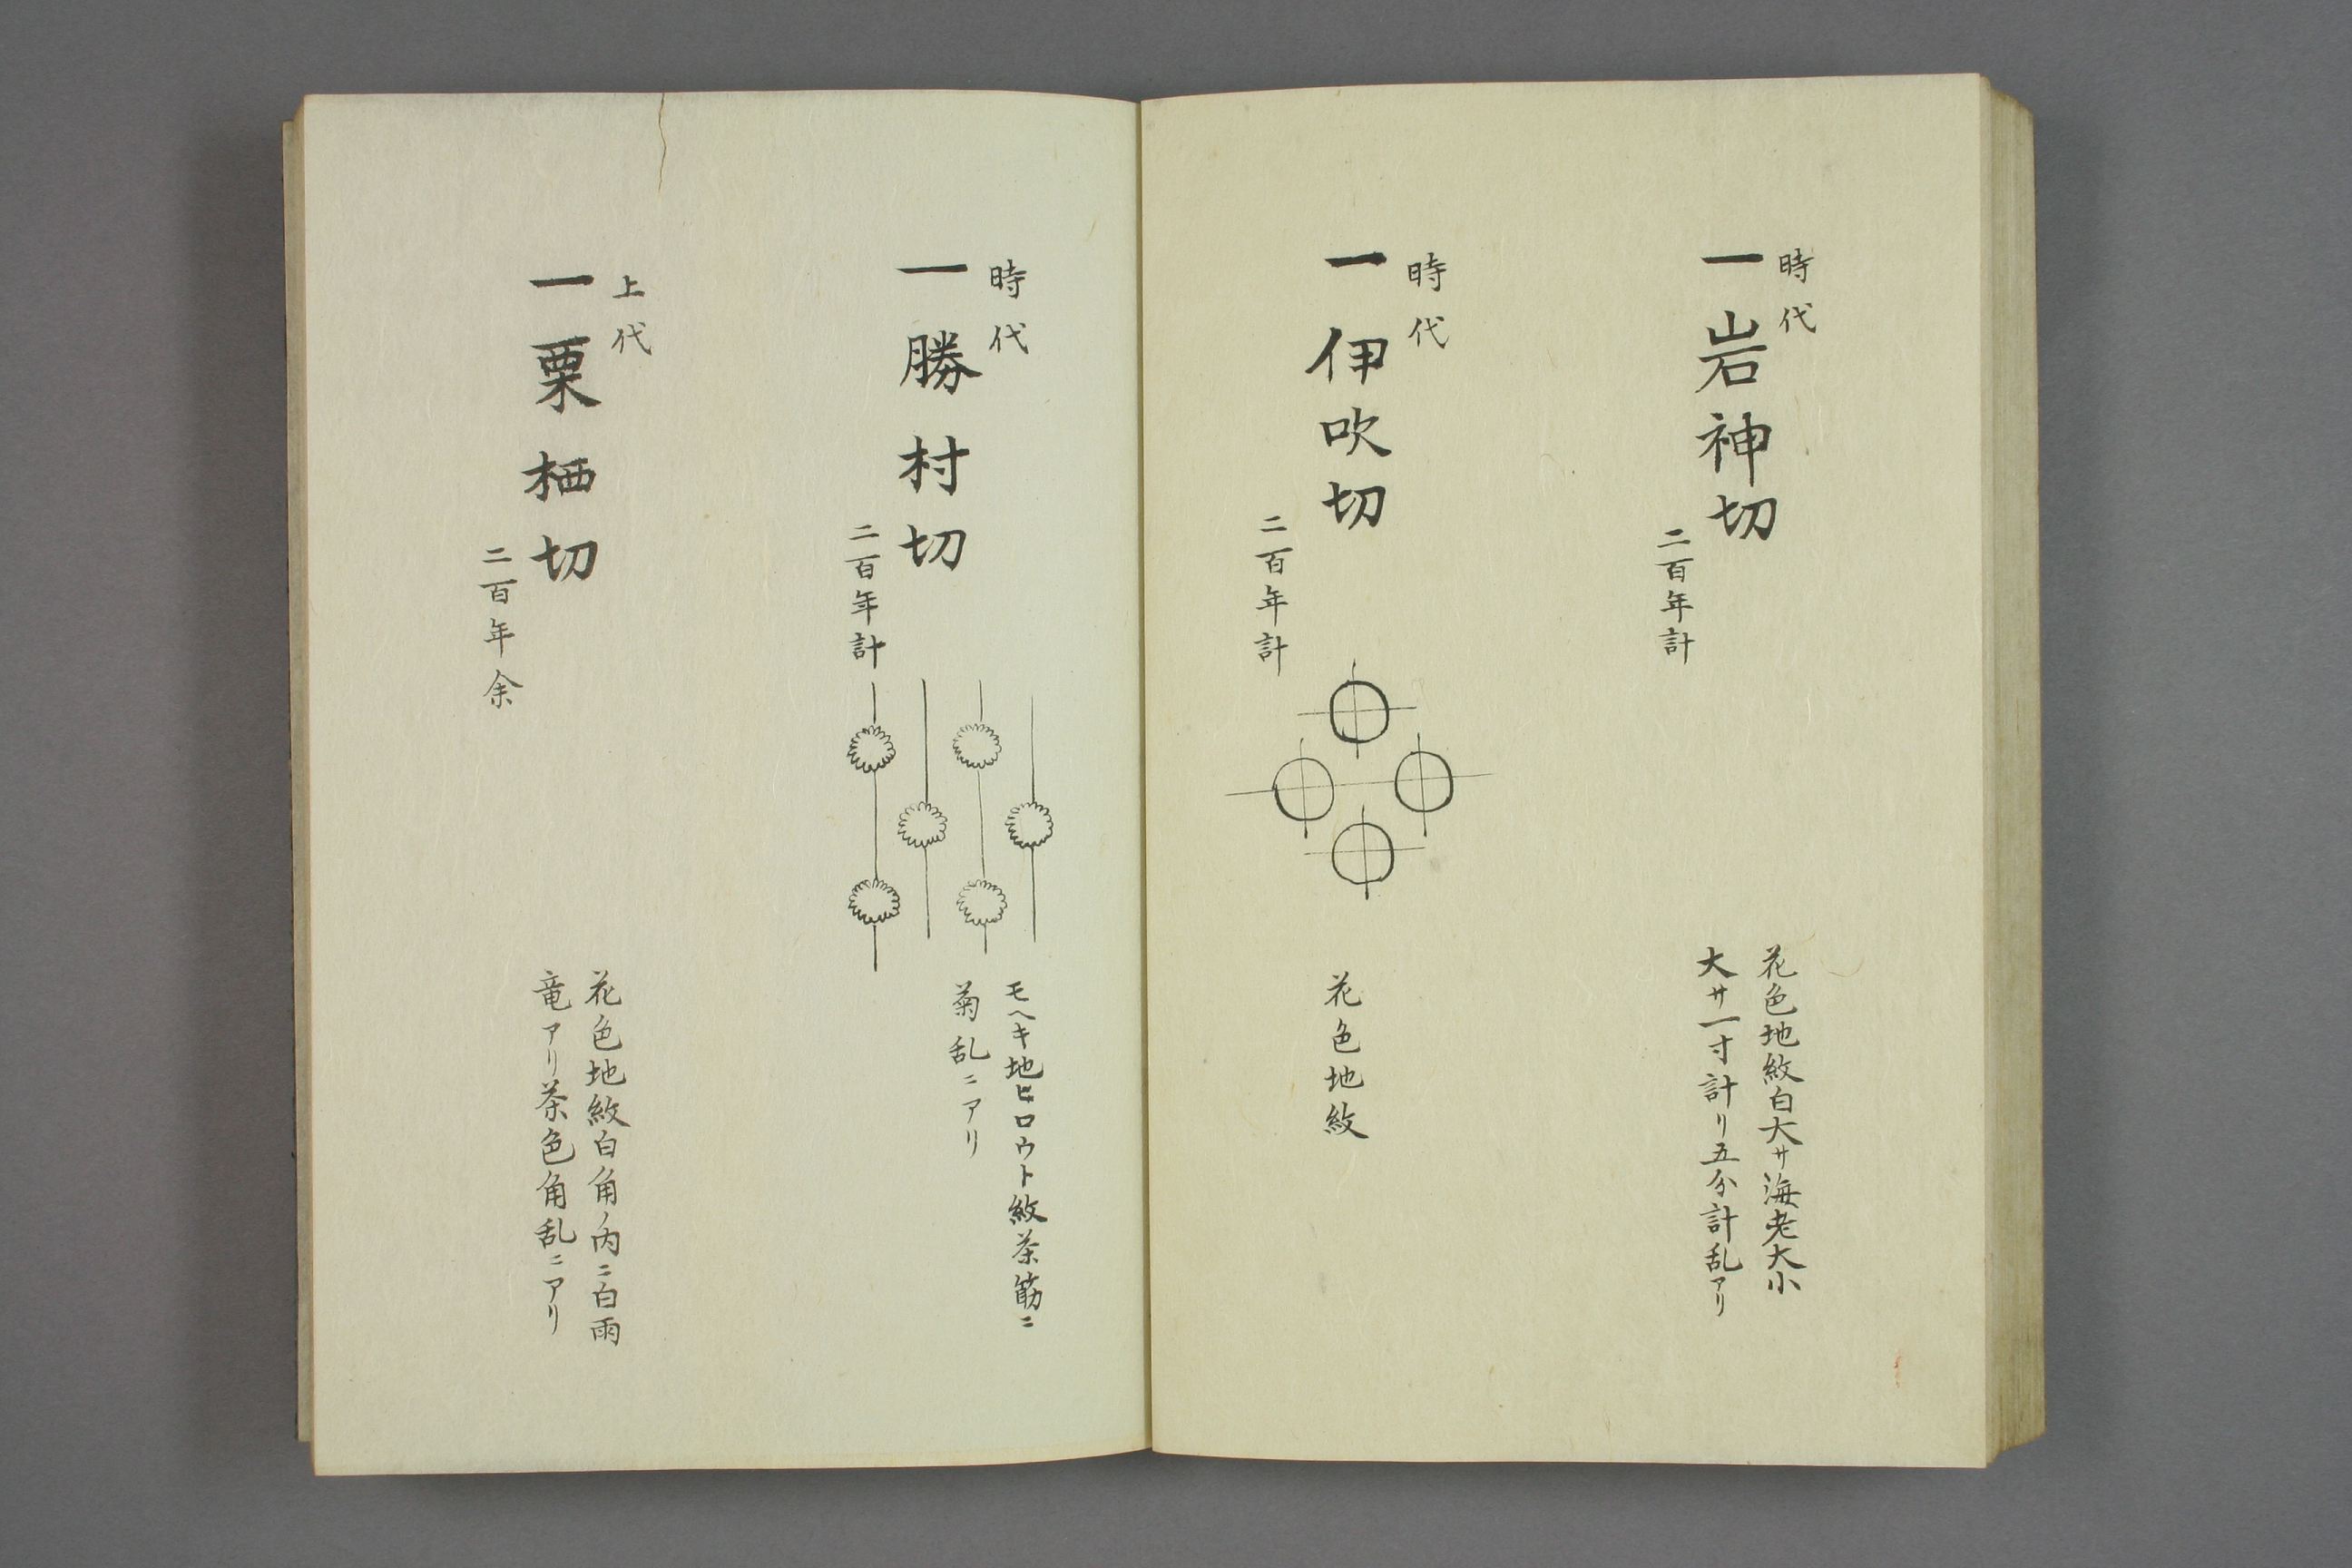 時代
一岩神切
二百年計
花色地紋白大サ海老大小
大サ一寸計リ五分計乱アリ
時代
一伊吹切
二百年計
花色地紋
時代
一勝村切
二百年計
モヘキ地ヒロウト紋茶筋ニ
菊乱ニアリ
上代
一栗栖切
二百年余
花色地紋白角ノ内ニ白雨
竜アリ茶色角乱ニアリ